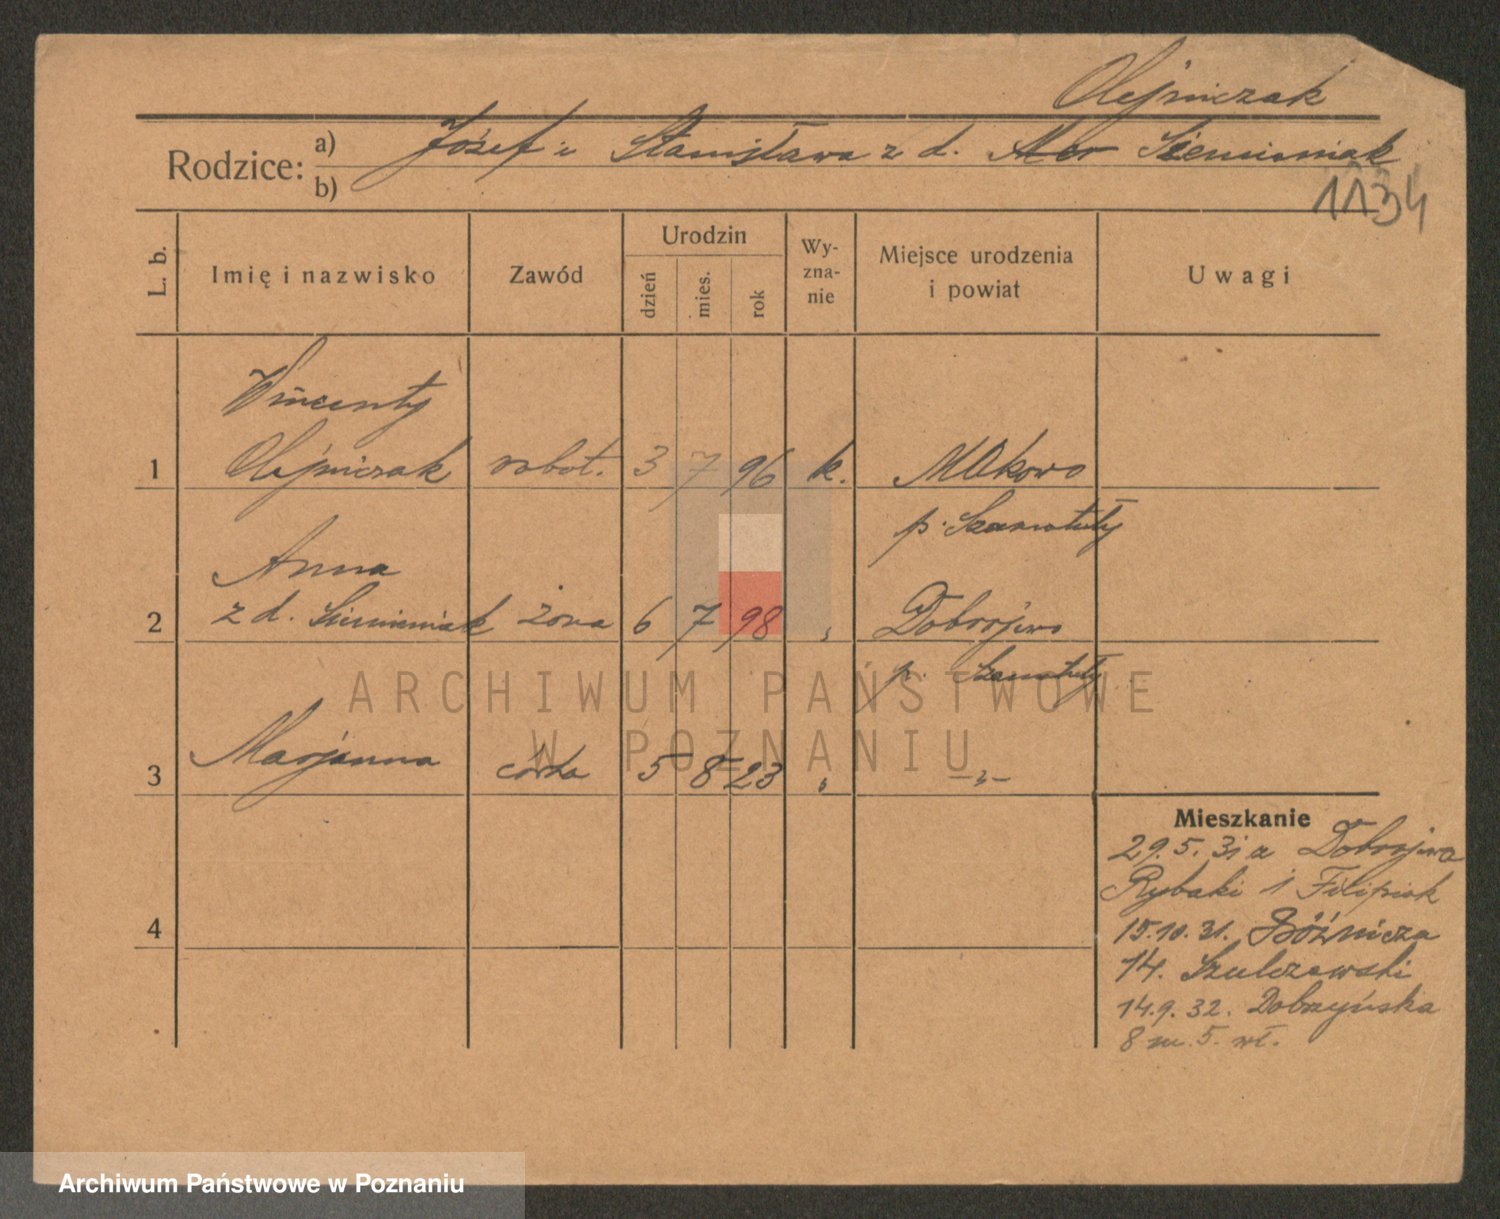 Olejniczak
Rodzice: a) Józef i Stanisława z d. Siemieniak
b)
1134
L. b.
Imię i nazwisko
Zawód
Urodzin
dzień
mies.
rok
Wy-
zna-
nie
Miejsce urodzenia
i powiat
Uwagi
Wincenty
1 Olejniczak robot. 3 7 96 k.
p. Szamotuły
Anna
2 z d. Siemieniak żona 6 7 98 " Dobrojewo
p. Szamotuły
3 Marjanna córka 5 8 23 " —"—
4
Mieszkanie
29.5.31 z Dobrojewa
Rybaki 1 Filipiak
15.10.31. Bóźnicza
14. Szulczewski
14.9.32. Dobrzyńska
8 m. 5. wł.
ARCHIWUM PAŃSTWOWE
W POZNANIU
Archiwum Państwowe w Poznaniu